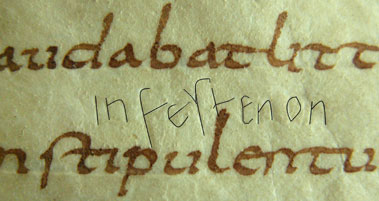 audabat litt
in ferſtenon
nstipulentu